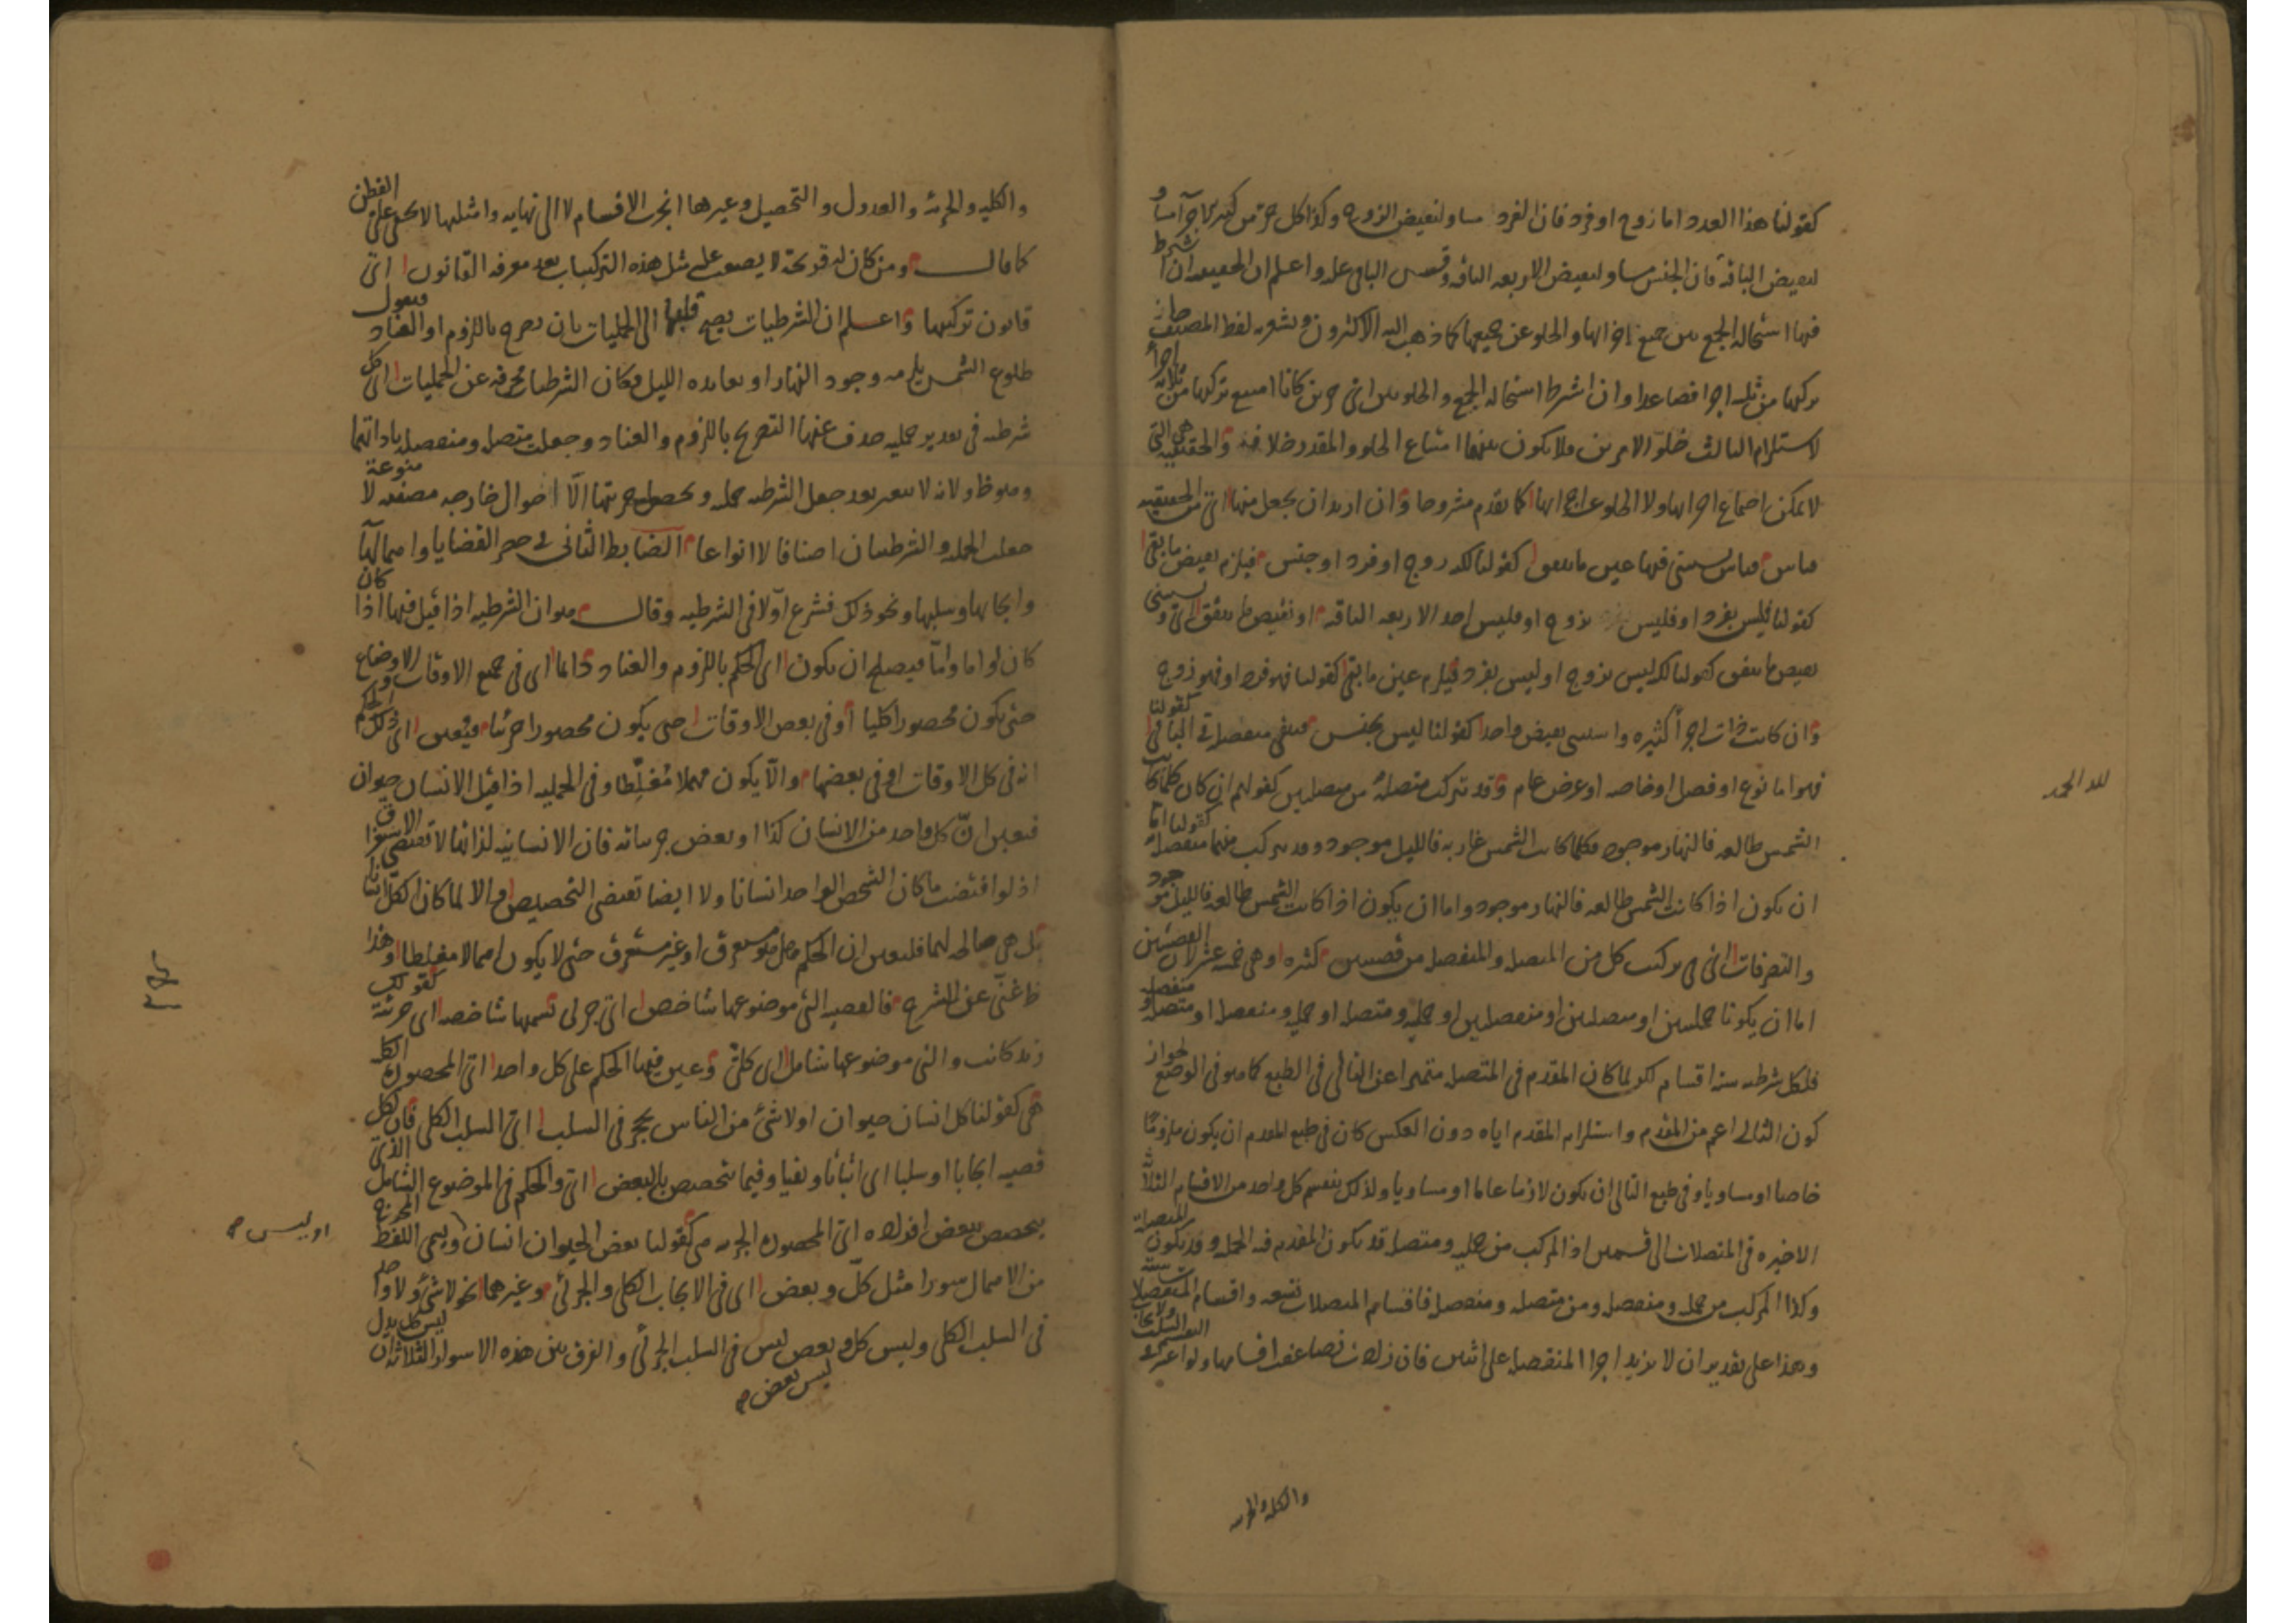 كقولنا هذا العدد اما زوج او فرد فان الفرد مساو لنقيض الزوج وكذا كل جزء من كثيرة الاجزاء مساو
لنقيض الباقية فان الجنس مساو لنقيض الاربعة الباقية وقس الباقي عليه واعلم ان الحقيقية ان شرط
فيها استحالة الجمع بين جميع اجزائها والخلو عن جميعها كما ذهب اليه الاكثرون ويشعر به لفظ المصنف جاز
تركبها من ثلثة اجزاء فصاعدا وان اشترط استحالة الجمع والخلو بين اي جزئين كانا امتنع تركبها من ثلاثة اجزاء
لاستلزام الثالث خلو الامرين فلا يكون بينهما امتناع الخلو والمقدر خلافه والحقيقية هي التي
لا يمكن اجتماع اجزائها ولا الخلو عن اجزائها كما تقدم مشروحا وان اريد ان يجعل منها اي من الحقيقية
قياس قياس يستثنى فيها عين ما يتفق كقولنا لكنه زوج او فرد او جنس فيلزم نقيض ما بقي
كقولنا فليس بفرد او فليس بزوج او فليس احد الاربعة الباقية او نقيض ما يتفق اي ويستثنى
نقيض ما يتفق كقولنا لكنه ليس بزوج او ليس بفرد فيلزم عين ما بقي كقولنا فهو فرد او فهو زوج
وان كانت ذات اجزاء كثيرة واستثني نقيض واحد كقولنا ليس بجنس فبقي منفصلة في الباقي كقولنا
فهو اما نوع او فصل او خاصة او عرض عام وقد تتركب متصلة من متصلتين كقولهم ان كان كلما كانت
الشمس طالعة فالنهار موجود فكلما كانت الشمس غاربة فالليل موجود وقد يتركب منهما منفصلة كقولنا اما
ان يكون اذا كانت الشمس طالعة فالنهار موجود واما ان يكون اذا كانت الشمس طالعة فالليل موجود
والتصرفات اي في تركيب كل من المتصلة والمنفصلة من قضيتين كثيرة وهي خمسة عشر لان القضيتين
اما ان يكونا حمليتين او متصلتين او منفصلتين او حملية ومتصلة او حملية ومنفصلة او متصلة ومنفصلة
فلكل شرطية ستة اقسام لكن لما كان المقدم في المتصلة متميزا عن التالي في الطبع كما هو في الوضع لجواز
كون التالي اعم من المقدم واستلزام المقدم اياه دون العكس كان في طبع المقدم ان يكون ملزوما
خاصا او مساويا وفي طبع التالي ان يكون لازما عاما او مساويا ولذلك ينقسم كل واحد من الاقسام الثلاثة
الاخيرة في المتصلات الى قسمين اذ المركب من حملية ومتصلة قد يكون المقدم فيه الحملية وقد يكون المتصلة
وكذا المركب من حملية ومنفصلة ومن متصلة ومنفصلة فاقسام المتصلات تسعة واقسام المنفصلات ستة
وهذا على تقدير ان لا يزيد اجزاء المنفصلة على اثنين فان زادت تضاعفت اقسامها ولو اعتبر في التقسيم السلب والايجاب
والكلية والجزئية
لله الحمد
والكلية والجزئية والعدول والتحصيل وغيرها انجرت الاقسام لا الى نهاية وامثلتها لا تخفى على الفطن
كما قال ومن كان له قريحة لا يصعب عليه مثل هذه التركيبات بعد معرفة القانون اي
قانون تركيبها واعلم ان الشرطيات يصح قلبها الى الحمليات بان يصرح باللزوم او العناد فيقول
طلوع الشمس يلزمه وجود النهار او يعانده الليل فكان الشرطيات محرفة عن الحمليات اي كل
شرطية في تقدير حملية حذف عنها التصريح باللزوم والعناد وجعلت متصلة ومنفصلة باداتهما
وهو ظ ولانه لا يتغير بعد جعل الشرطية حملية وتحصيل جزئتها الا احوال خارجة مصنفة لا منوعة
جعلت الحملية والشرطيتان اصنافا لا انواعا الضابط الثاني في حصر القضايا واهمالها
وايجابها وسلبها ونحو ذلك فشرع اولا في الشرطية وقال هو ان الشرطية اذا قيل فيها اذا كان
كان او اما واما فيصلح ان يكون اي الحكم باللزوم والعناد دائما اي في جميع الاوقات والاوضاع
حتى يكون محصورا كليا او في بعض الاوقات حتى يكون محصورا جزئيا فيعين اي ذلك الحكم
انه في كل الاوقات او في بعضها والا يكون مهملا مغلطا وفي الحملية اذا قيل الانسان حيوان
فيعين ان كل واحد من الانسان كذا او بعض جزئياته فان الانسانية لذاتها لا تقتضي الاستغراق
اذ لو اقتضت ما كان الشخص الواحد انسانا ولا ايضا تقتضي التخصيص والا لما كان الكل انسانا
بل هي صالحة لهما فليعين ان الحكم هل هو مستغرق او غير مستغرق حتى لا يكون اهمالا مغلطا وهذا
ظ غني عن الشرح فالقضية التي موضوعها شاخص اي جزئي تسميها شاخصة اي جزئية كقولك
زيد كاتب والتي موضوعها شامل اي كلي وعين فيها الحكم على كل واحد اي المحصورة الكلية
هي كقولنا كل انسان حيوان او لا شيء من الناس بحجر في السلب اي السلب الكلي فان لكل
قضية ايجابا او سلبا اي اثباتا ونفيا وفيما تخصص بالبعض اي والحكم في الموضوع الشامل الذي
يتخصص ببعض افراده اي المحصورة الجزئية هي كقولنا بعض الحيوان انسان ويسمى اللفظ المخرج
من الاهمال سورا مثل كل وبعض اي في الايجاب الكلي والجزئي وغيرهما نحو لا شيء ولا واحد
في السلب الكلي وليس كل وبعض ليس في السلب الجزئي والفرق بين هذه الاسوار الثلاثة ان ليس كل يدل
ليس بعض
او ليس